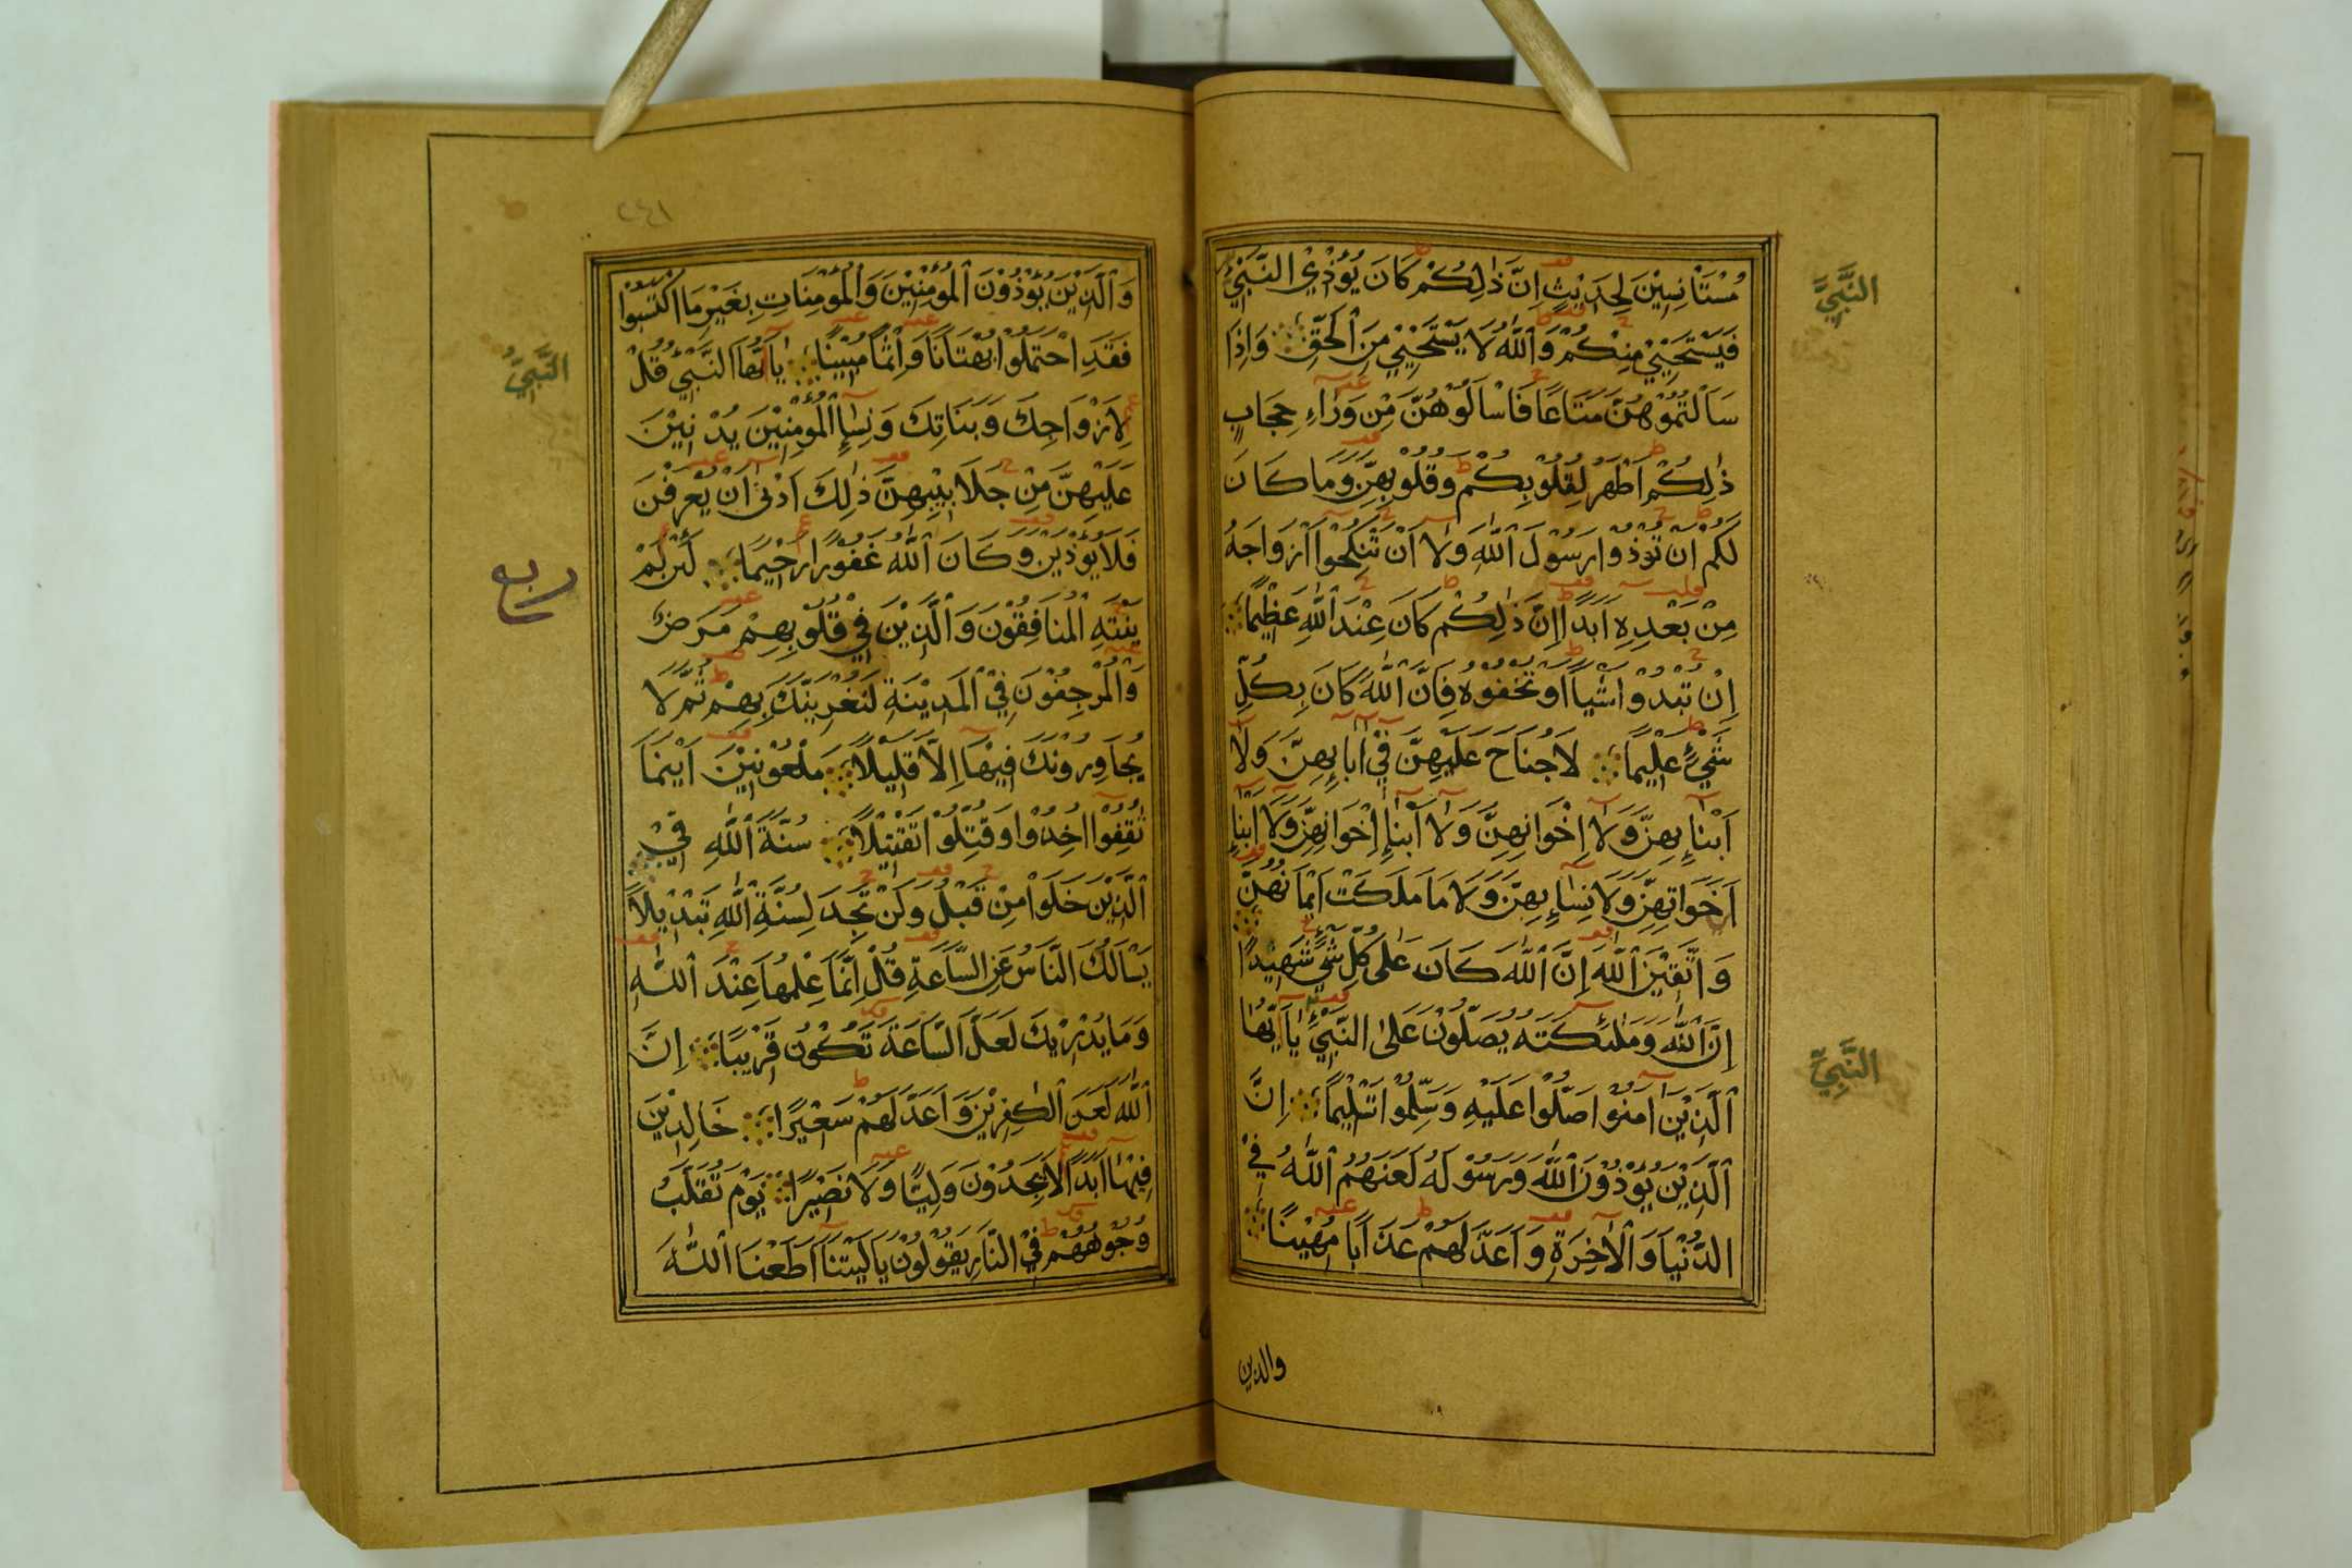 مُسْتَأْنِسِيْنَ لِحَدِيْثٍ اِنَّ ذٰلِكُمْ كَانَ يُؤْذِي النَّبِيَّ
فَيَسْتَحْيِيْ مِنْكُمْ وَاللّٰهُ لَا يَسْتَحْيِيْ مِنَ الْحَقِّ وَاِذَا
سَاَلْتُمُوْهُنَّ مَتَاعًا فَاسْاَلُوْهُنَّ مِنْ وَرَاءِ حِجَابٍ
ذٰلِكُمْ اَطْهَرُ لِقُلُوْبِكُمْ وَقُلُوْبِهِنَّ وَمَا كَانَ
لَكُمْ اَنْ تُؤْذُوا رَسُوْلَ اللّٰهِ وَلَا اَنْ تَنْكِحُوْا اَزْوَاجَهُ
مِنْ بَعْدِهِ اَبَدًا اِنَّ ذٰلِكُمْ كَانَ عِنْدَ اللّٰهِ عَظِيْمًا
اِنْ تُبْدُوْا شَيْئًا اَوْ تُخْفُوْهُ فَاِنَّ اللّٰهَ كَانَ بِكُلِّ
شَيْءٍ عَلِيْمًا لَا جُنَاحَ عَلَيْهِنَّ فِيْ اٰبَائِهِنَّ وَلَا
اَبْنَائِهِنَّ وَلَا اِخْوَانِهِنَّ وَلَا اَبْنَاءِ اِخْوَانِهِنَّ وَلَا اَبْنَاءِ
اَخَوَاتِهِنَّ وَلَا نِسَائِهِنَّ وَلَا مَا مَلَكَتْ اَيْمَانُهُنَّ
وَاتَّقِيْنَ اللّٰهَ اِنَّ اللّٰهَ كَانَ عَلٰى كُلِّ شَيْءٍ شَهِيْدًا
اِنَّ اللّٰهَ وَمَلٰئِكَتَهُ يُصَلُّوْنَ عَلَى النَّبِيِّ يَا اَيُّهَا
الَّذِيْنَ اٰمَنُوْا صَلُّوْا عَلَيْهِ وَسَلِّمُوْا تَسْلِيْمًا اِنَّ
الَّذِيْنَ يُؤْذُوْنَ اللّٰهَ وَرَسُوْلَهُ لَعَنَهُمُ اللّٰهُ فِي
الدُّنْيَا وَالْاٰخِرَةِ وَاَعَدَّ لَهُمْ عَذَابًا مُهِيْنًا
والذين
النَّبِيَّ
النَّبِيِّ
٢٤١
وَالَّذِيْنَ يُؤْذُوْنَ الْمُؤْمِنِيْنَ وَالْمُؤْمِنَاتِ بِغَيْرِ مَا اكْتَسَبُوْا
فَقَدِ احْتَمَلُوْا بُهْتَانًا وَاِثْمًا مُبِيْنًا يَا اَيُّهَا النَّبِيُّ قُلْ
لِاَزْوَاجِكَ وَبَنَاتِكَ وَنِسَاءِ الْمُؤْمِنِيْنَ يُدْنِيْنَ
عَلَيْهِنَّ مِنْ جَلَابِيْبِهِنَّ ذٰلِكَ اَدْنٰى اَنْ يُعْرَفْنَ
فَلَا يُؤْذَيْنَ وَكَانَ اللّٰهُ غَفُوْرًا رَحِيْمًا لَئِنْ لَمْ
يَنْتَهِ الْمُنَافِقُوْنَ وَالَّذِيْنَ فِيْ قُلُوْبِهِمْ مَرَضٌ
وَالْمُرْجِفُوْنَ فِي الْمَدِيْنَةِ لَنُغْرِيَنَّكَ بِهِمْ ثُمَّ لَا
يُجَاوِرُوْنَكَ فِيْهَا اِلَّا قَلِيْلًا مَلْعُوْنِيْنَ اَيْنَمَا
ثُقِفُوْا اُخِذُوْا وَقُتِّلُوْا تَقْتِيْلًا سُنَّةَ اللّٰهِ فِي
الَّذِيْنَ خَلَوْا مِنْ قَبْلُ وَلَنْ تَجِدَ لِسُنَّةِ اللّٰهِ تَبْدِيْلًا
يَسْاَلُكَ النَّاسُ عَنِ السَّاعَةِ قُلْ اِنَّمَا عِلْمُهَا عِنْدَ اللّٰهِ
وَمَا يُدْرِيْكَ لَعَلَّ السَّاعَةَ تَكُوْنُ قَرِيْبًا اِنَّ
اللّٰهَ لَعَنَ الْكٰفِرِيْنَ وَاَعَدَّ لَهُمْ سَعِيْرًا خَالِدِيْنَ
فِيْهَا اَبَدًا لَا يَجِدُوْنَ وَلِيًّا وَلَا نَصِيْرًا يَوْمَ تُقَلَّبُ
وُجُوْهُهُمْ فِي النَّارِ يَقُوْلُوْنَ يَا لَيْتَنَا اَطَعْنَا اللّٰهَ
النَّبِيُّ
ربع